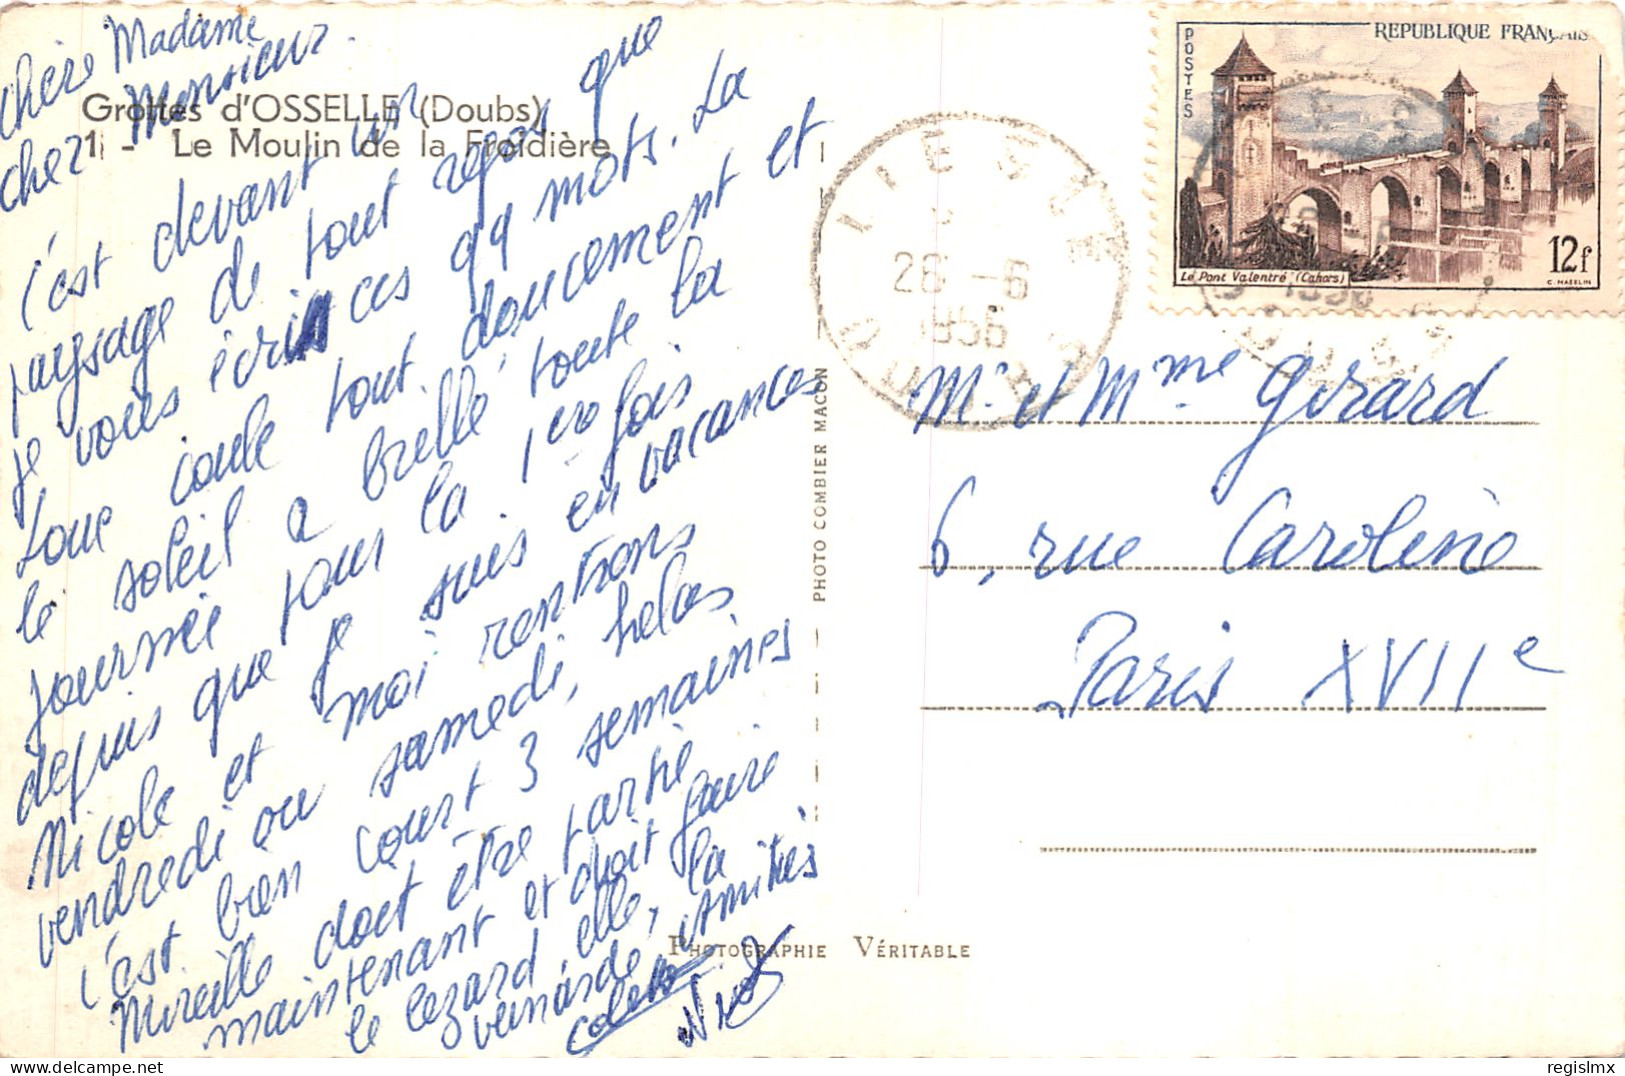 Chère Madame
Cher Monsieur.
Grottes d'OSSELLE (Doubs)
1 - Le Moulin de la Froidière
C'est devant un
paysage de tout repos que
je vous écris ces qq mots. La
Loue coule tout doucement et
le soleil a brillé toute la
journée pour la 1ere fois
depuis que je suis en vacances
Nicole et moi rentrons
vendredi ou samedi, hélas
c'est bien court 3 semaines
Mireille doit être partie
maintenant et doit faire
le lezard, elle, la
veinarde, amitiés
PHOTO COMBIER MACON
PHOTOGRAPHIE VÉRITABLE
28 -6
1956
POSTES
REPUBLIQUE FRANÇAISE
12f
Le Pont Valentré (Cahors)
C. MAZELIN
Mr et Mme Girard
6, rue Caroline
Paris XVIIe
regislmx